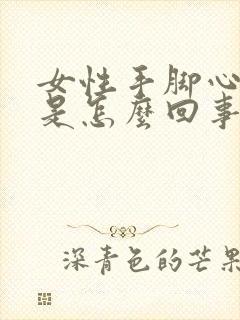 女性手脚心
是怎麼回事
深青色的芒果